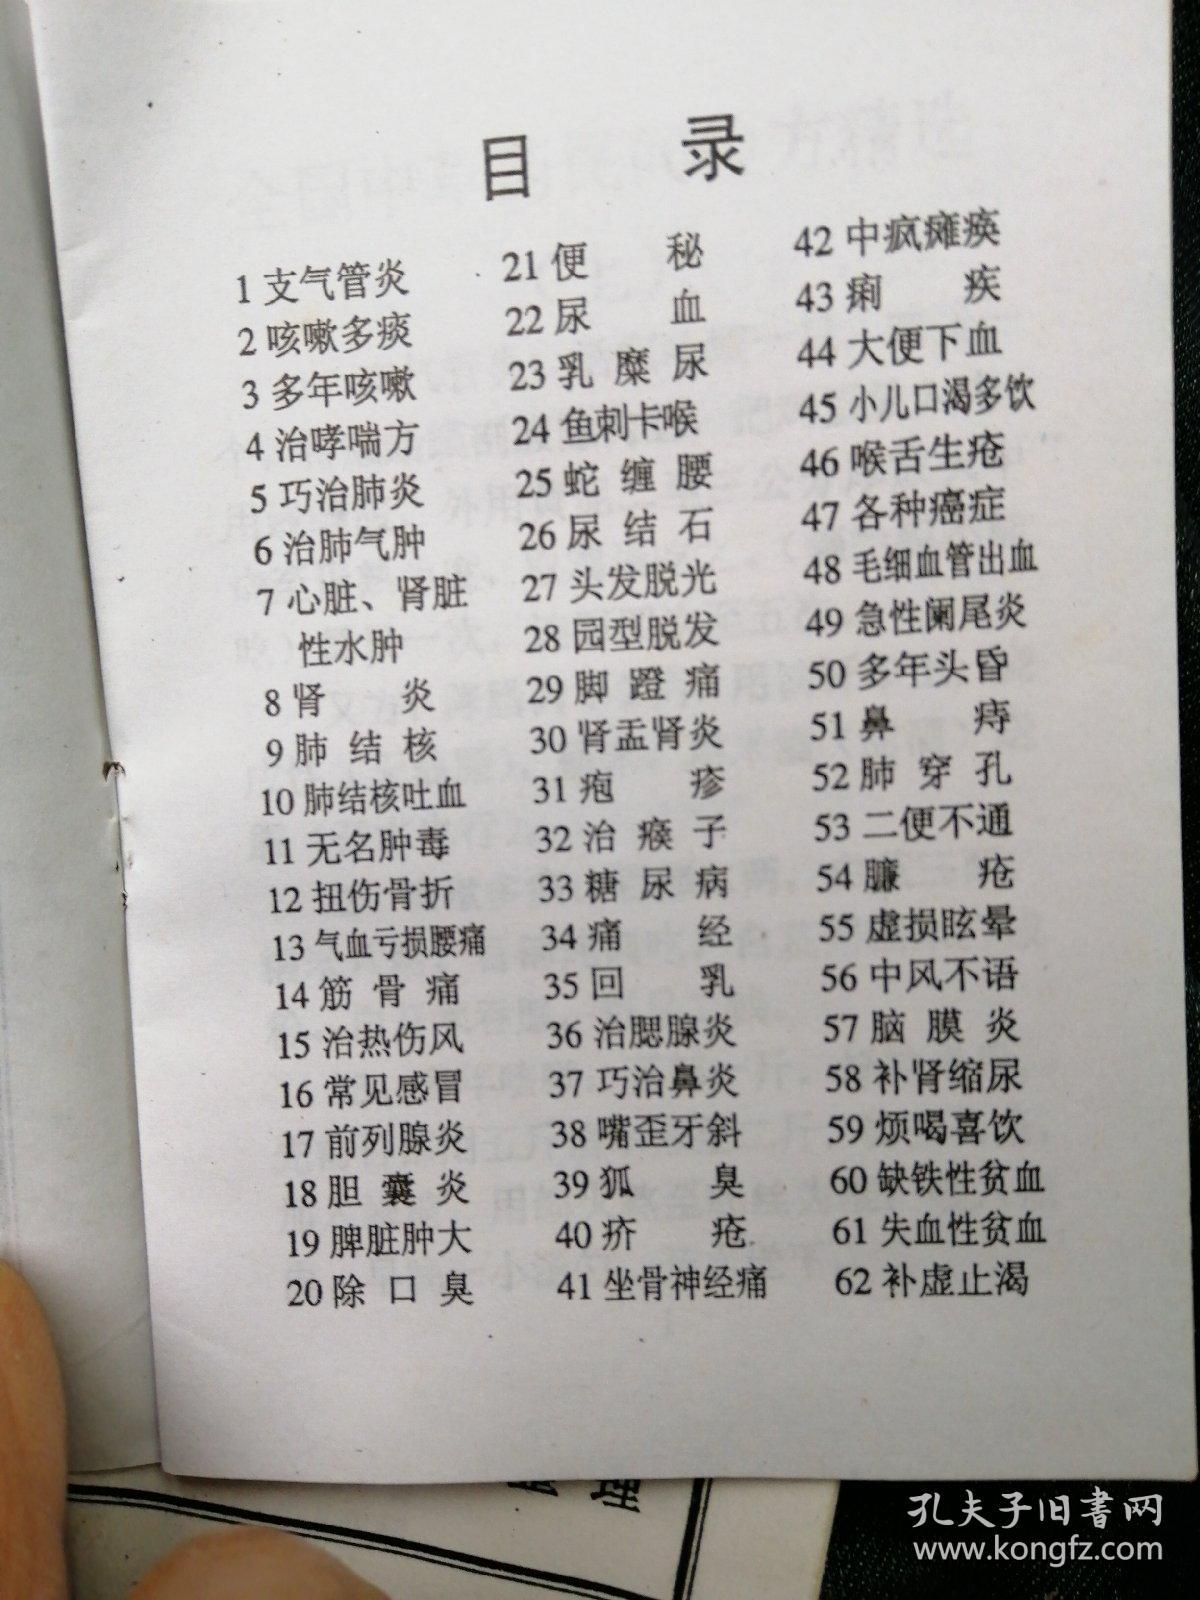 目 录
1 支气管炎
2 咳嗽多痰
3 多年咳嗽
4 治哮喘方
5 巧治肺炎
6 治肺气肿
7 心脏、肾脏
性水肿
8 肾 炎
9 肺 结 核
10 肺结核吐血
11 无名肿毒
12 扭伤骨折
13 气血亏损腰痛
14 筋 骨 痛
15 治热伤风
16 常见感冒
17 前列腺炎
18 胆 囊 炎
19 脾脏肿大
20 除 口 臭
21 便 秘
22 尿 血
23 乳 糜 尿
24 鱼刺卡喉
25 蛇 缠 腰
26 尿 结 石
27 头发脱光
28 园型脱发
29 脚 蹬 痛
30 肾盂肾炎
31 疱 疹
32 治 瘊 子
33 糖 尿 病
34 痛 经
35 回 乳
36 治腮腺炎
37 巧治鼻炎
38 嘴歪牙斜
39 狐 臭
40 疥 疮
41 坐骨神经痛
42 中疯瘫痪
43 痢 疾
44 大便下血
45 小儿口渴多饮
46 喉舌生疮
47 各种癌症
48 毛细血管出血
49 急性阑尾炎
50 多年头昏
51 鼻 痔
52 肺 穿 孔
53 二便不通
54 臁 疮
55 虚损眩晕
56 中风不语
57 脑 膜 炎
58 补肾缩尿
59 烦喝喜饮
60 缺铁性贫血
61 失血性贫血
62 补虚止渴
理
孔夫子旧书网
www.kongfz.com